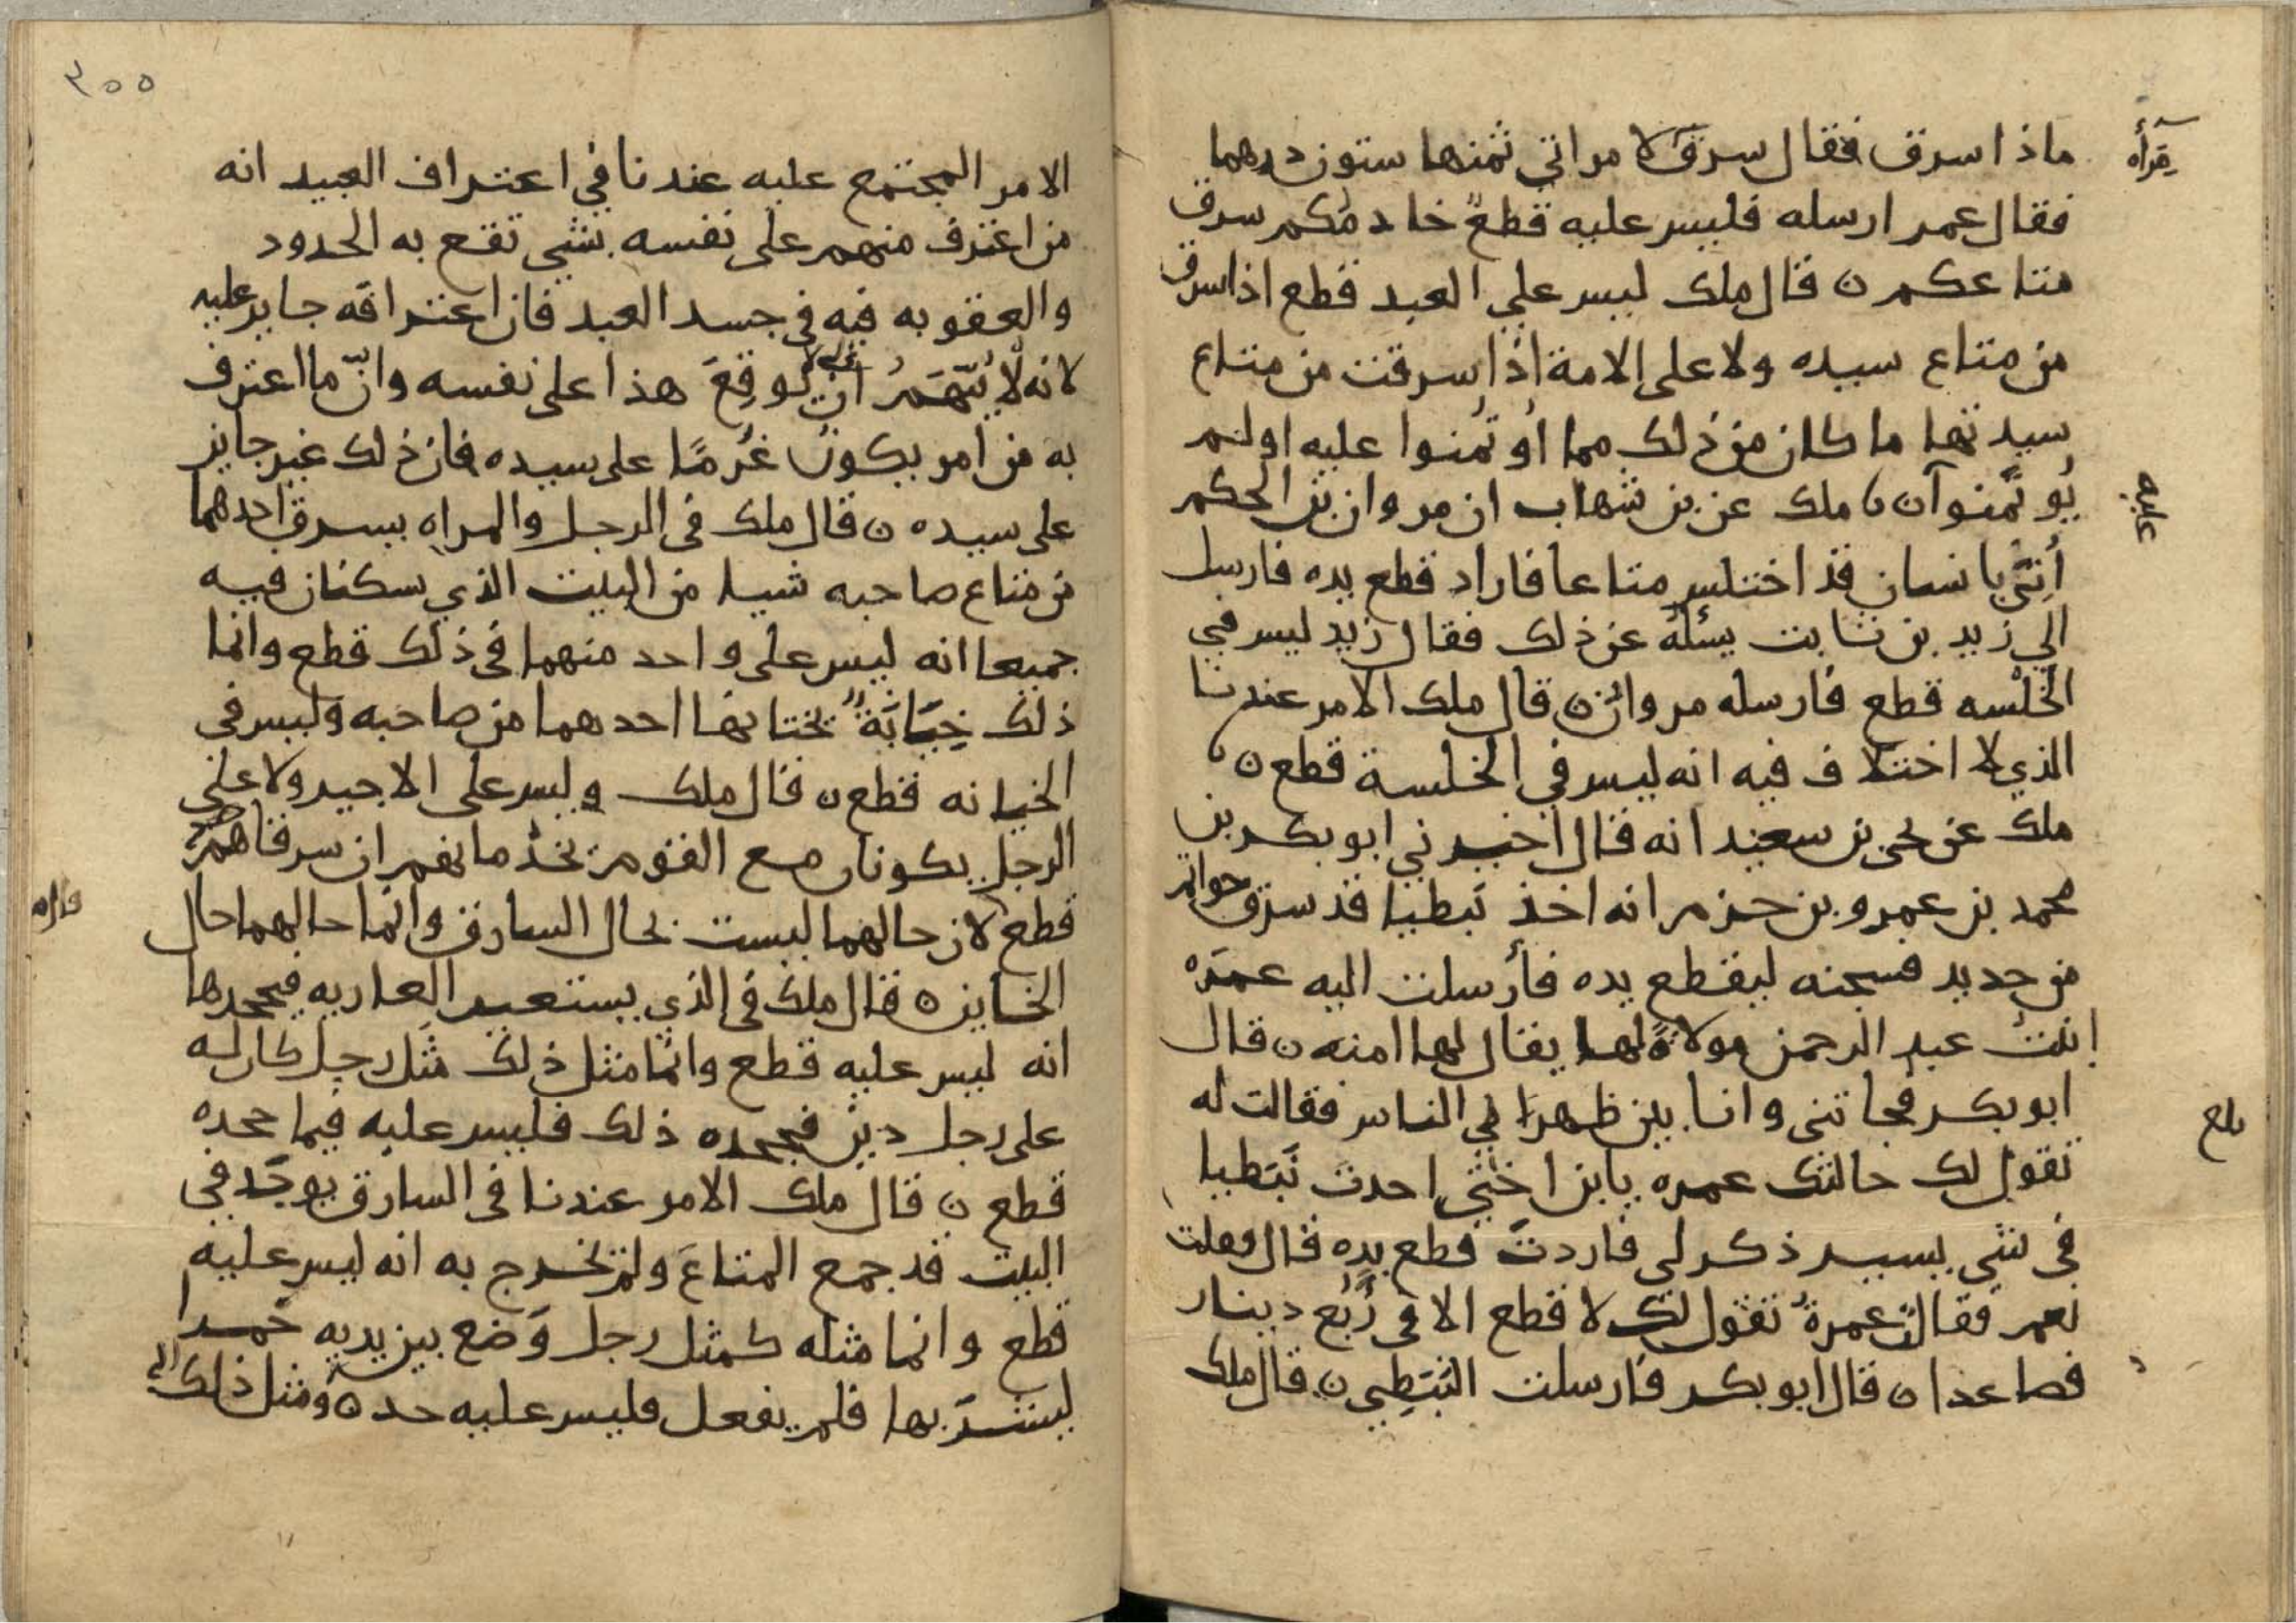 ماذا سرق فقال سرق لامراتي ثمنها ستون درهما
فقال عمر ارسله فليس عليه قطع خادمكم سرق
متاعكم ن قال ملك ليس علي العبد قطع اذا سرق
من متاع سيده ولا على الامة اذا سرقت من متاع
سيدتها ما كان من ذلك مما اوتمنوا عليه او لم
يوتمنوا ن ملك عن بن شهاب ان مروان بن الحكم
أتي بانسان قد اختلس متاعا فاراد قطع يده فارسل
الي زيد بن ثابت يسئله عن ذلك فقال زيد ليس في
الخلسه قطع فارسله مروان ن قال ملك الامر عندنا
الذي لا اختلاف فيه انه ليس في الخلسة قطع ن
ملك عن يحي بن سعيد انه قال اخبرني ابو بكر بن
محمد بن عمرو بن حزم انه اخذ نبطيا قد سرق خواتم
من حديد فسجنه ليقطع يده فأرسلت اليه عمره
ابنت عبد الرحمن مولاة لها يقال لها امنه ن قال
ابو بكر فجاتني وانا بين ظهرا ني الناس فقالت له
تقول لك خالتك عمره يا بن اختي اخذت نبطيا
في شي يسير ذكر لي فاردت قطع يده قال فقلت
نعم فقالت عمرة تقول لك لا قطع الا في ربع دينار
فصاعدا ن قال ابو بكر فارسلت النبطي ن قال ملك
قرأه
عليه
بلغ
٣٥٥
الامر المجتمع عليه عندنا في اعتراف العبيد انه
من اعترف منهم على نفسه بشي تقع به الحدود
والعقوبه فيه في جسد العبد فان اعترافه جايز عليه
لانه لا يتهم ان يوقع هذا على نفسه وان ما اعترف
به من امر يكون غرما على سيده فان ذلك غير جايز
على سيده ن قال ملك في الرجل والمراه يسرق احدهما
من متاع صاحبه شيا من البيت الذي يسكنان فيه
جميعا انه ليس على واحد منهما في ذلك قطع وانما
ذلك خيانة يختانها احدهما من صاحبه وليس في
الخيانه قطع ن قال ملك وليس على الاجير ولا على
الرجل يكونان مع القوم يخدمانهم ان سرقاهم
قطع لان حالهما ليست بحال السارق وانما حالهما حال
الخاين ن قال ملك في الذي يستعير العاريه فيجحدها
انه ليس عليه قطع وانما مثل ذلك مثل رجل كان له
على رجل دين فجحده ذلك فليس عليه فيما جحده
قطع ن قال ملك الامر عندنا في السارق يوجد في
البيت قد جمع المتاع ولم يخرج به انه ليس عليه
قطع وانما مثله كمثل رجل وضع بين يديه خمرا
ليشربها فلم يفعل فليس عليه حد ن ومثل ذلك